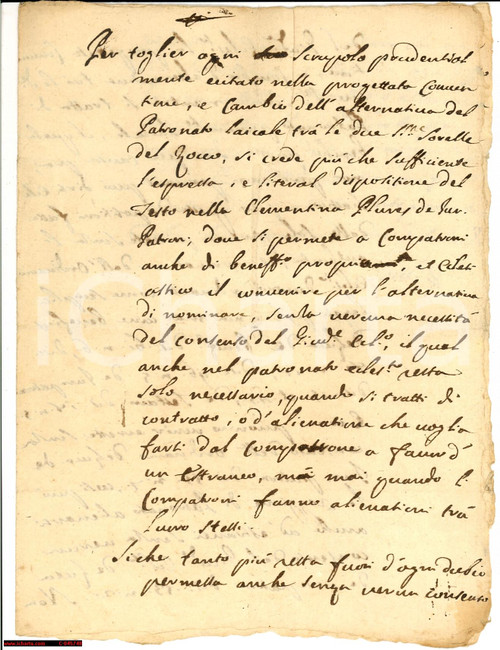 Per toglier ogni scrupolo prudential
mente exitato nella progettata Conuen
tione, e Cambio dell'alternatiua del
Patronato laicale trà le due Ill.me Sorelle
del Zocco, si crede più che sufficiente
l'espressa, e literal dispositione del
Testo nella Clementina Plures de Iur.
Patron; doue si permete a Compatroni
anche di beneff.o propri et Eclesi
astico il conuenire per l'alternatiua
di nominare, senza ueruna necessità
del consenso del Giud.e Ecl.o, il qual
anche nel patronato eclest.o resta
solo necessario, quando si tratti di
contratto, ò d'alienatione che uoglia
farsi dal compatrone a fauor d'
un Estraneo, mà mai quando li
Compatroni fanno alienationi trà
luoro stessi.
Siche tanto più resta fuori d'ogni dubio
permessa anche senza uerun consenso